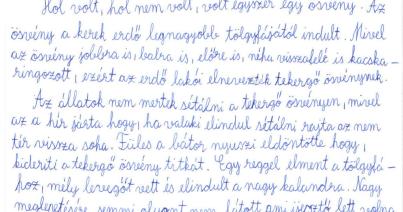 Hol volt, hol nem volt, volt egyszer egy ösvény. Az
ösvény a kerek erdő legnagyobb tölgyfájától indult. Mivel
az ösvény jobbra is, balra is, előre is, néha visszafelé is kacska-
ringozott, ezért az erdő lakói elnevezték tekergő ösvénynek.
Az állatok nem mertek sétálni a tekergő ösvényen, mivel
az a hír járta hogy, ha valaki elindul sétálni rajta az nem
tér vissza soha. Füles a bátor nyuszi eldöntötte hogy,
kideríti a tekergő ösvény titkát. Egy reggel elment a tölgyfá-
hoz, mély levegőt vett és elindult a nagy kalandra. Nagy
meglepetésére semmi olyant nem látott ami ijesztő lett volna